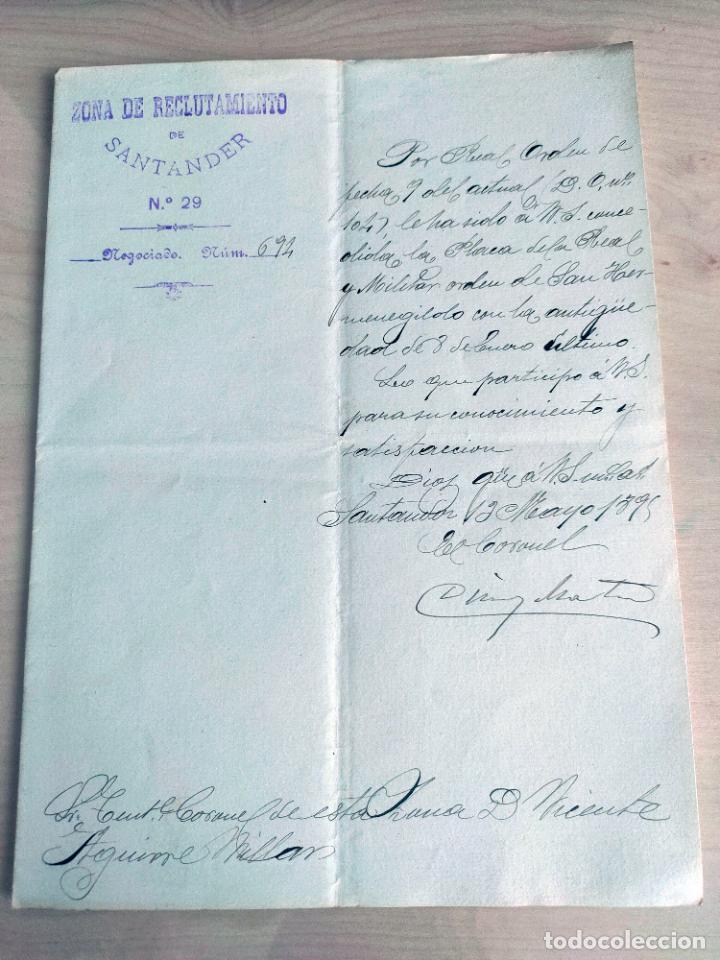 ZONA DE RECLUTAMIENTO
DE
SANTANDER
N.º 29
Negociado. Núm. 694
Por Real Orden de
fecha 9 del actual (D. O. nº
104), le ha sido á V. S. conce-
dida la Placa de la Real
y Militar orden de San Her-
menegildo con la antigüe-
dad de 8 de Enero último.
Lo que participo á V. S.
para su conocimiento y
satisfaccion
Dios gue á V. S. m. a.
Santander 13 Mayo 1895
El Coronel
Sr. Tent. Coronel de esta Zona D. Vicente
Aguirre Villar
todocoleccion
todocoleccion.net